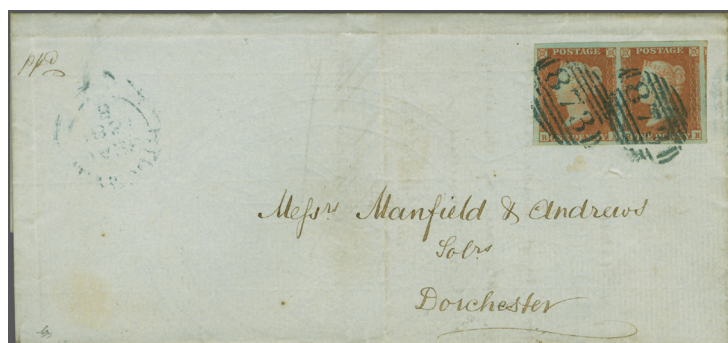 ppd
POSTAGE POSTAGE
873 873
Messrs Manfield & Andrews
Solrs
Dorchester